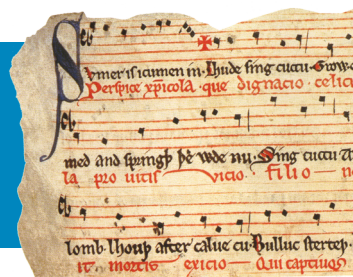 Svmer is icumen in. Lhude sing cuccu. Growe
Perspice xpicola. que dignacio. celicus
med and springþ þe wde nu. Sing cuccu
la pro uitis vicio. filio
lomb. lhouþ after calue cu. Bulluc sterteþ.
it. mortis exicio Qui captiuos